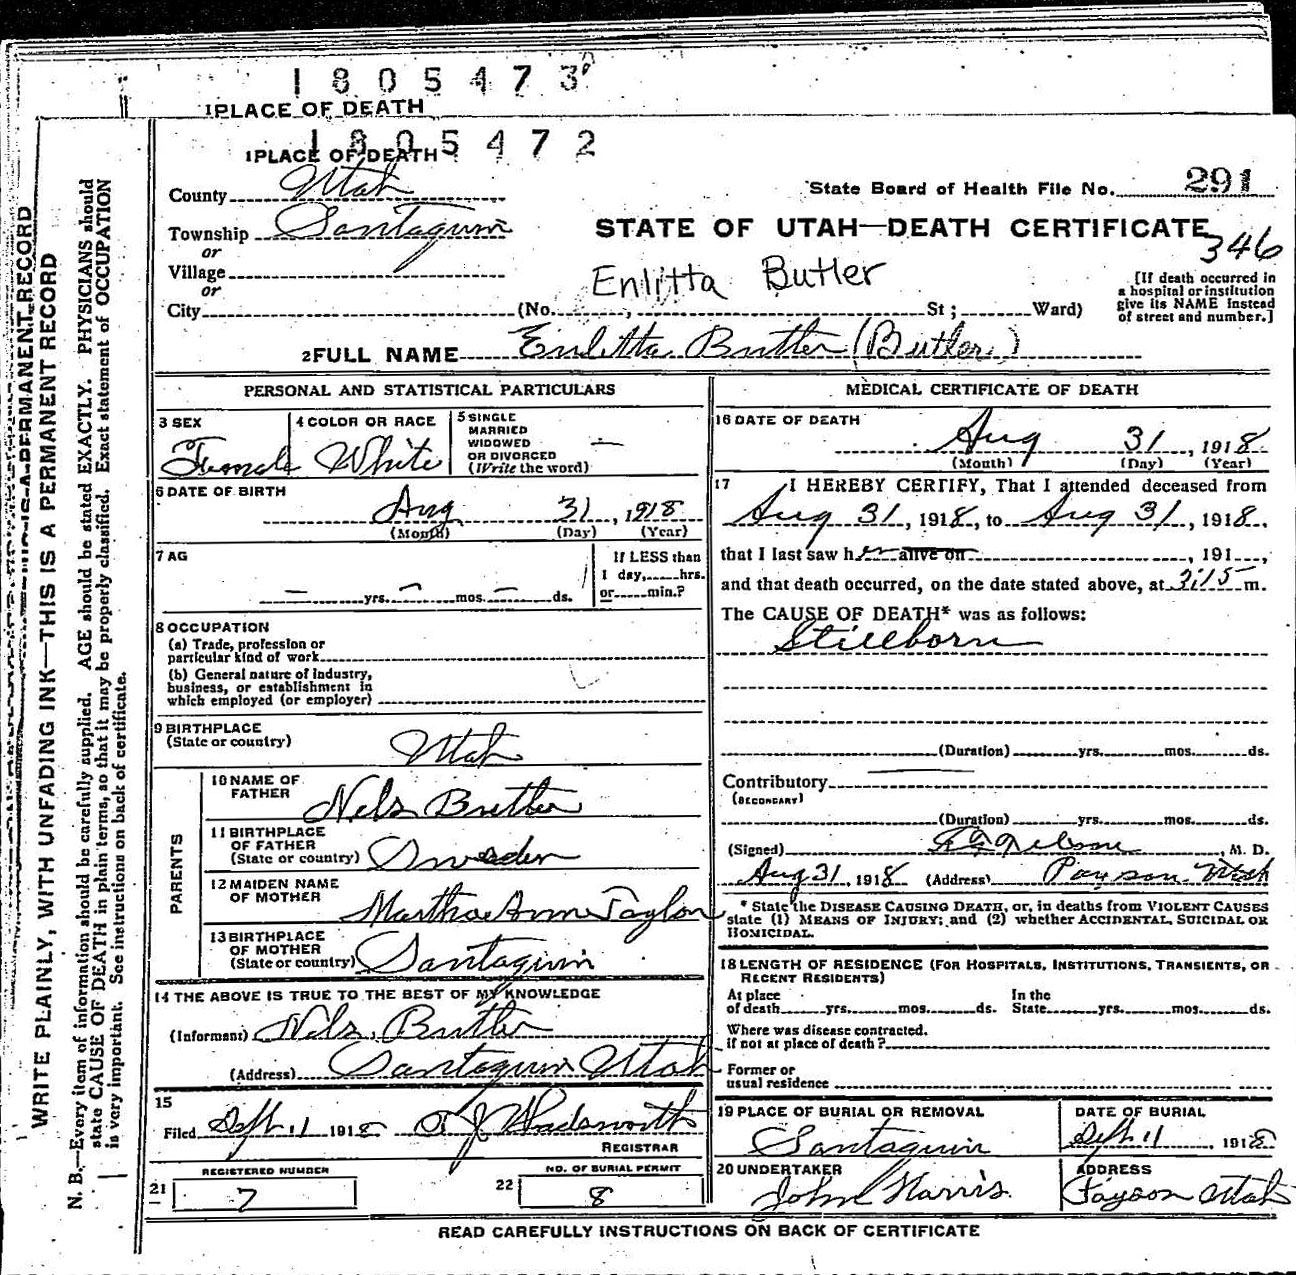 1805473
1 PLACE OF DEATH
1805472
1 PLACE OF DEATH
County Utah
State Board of Health File No. 291
Township Santaquin
STATE OF UTAH—DEATH CERTIFICATE
346
or
Village
or
Enlitta Butler
[If death occurred in
a hospital or institution
give its NAME instead
of street and number.]
City (No. , St ; Ward)
2 FULL NAME Enletta Butler (Butler)
PERSONAL AND STATISTICAL PARTICULARS
3 SEX
Female
4 COLOR OR RACE
White
5 SINGLE
MARRIED
WIDOWED
OR DIVORCED
(Write the word)
—
6 DATE OF BIRTH
Aug 31, 1918
(Month) (Day) (Year)
7 AG
— yrs. — mos. — ds.
If LESS than
1 day, hrs.
or min.?
8 OCCUPATION
(a) Trade, profession or
particular kind of work
(b) General nature of industry,
business, or establishment in
which employed (or employer)
9 BIRTHPLACE
(State or country)
Utah
PARENTS
10 NAME OF
FATHER
Nels Butler
11 BIRTHPLACE
OF FATHER
(State or country) Sweden
12 MAIDEN NAME
OF MOTHER
Martha Ann Taylor
13 BIRTHPLACE
OF MOTHER
(State or country) Santaquin
14 THE ABOVE IS TRUE TO THE BEST OF MY KNOWLEDGE
(Informant) Nels Butler
(Address) Santaquin Utah
15
Filed Sept 11 1918 Wadsworth
REGISTRAR
REGISTERED NUMBER
21 7
NO. OF BURIAL PERMIT
22 8
MEDICAL CERTIFICATE OF DEATH
16 DATE OF DEATH
Aug 31, 1918
(Month) (Day) (Year)
17 I HEREBY CERTIFY, That I attended deceased from
Aug 31, 1918, to Aug 31, 1918,
that I last saw her alive on , 191 ,
and that death occurred, on the date stated above, at 3:15 m.
The CAUSE OF DEATH* was as follows:
Stillborn
(Duration) yrs. mos. ds.
Contributory
(SECONDARY)
(Duration) yrs. mos. ds.
(Signed) , M. D.
Aug 31, 1918 (Address) Payson Utah
* State the DISEASE CAUSING DEATH, or, in deaths from VIOLENT CAUSES
state (1) MEANS OF INJURY; and (2) whether ACCIDENTAL, SUICIDAL OR
HOMICIDAL.
18 LENGTH OF RESIDENCE (FOR HOSPITALS, INSTITUTIONS, TRANSIENTS, OR
RECENT RESIDENTS)
At place
of death yrs. mos. ds.
In the
State yrs. mos. ds.
Where was disease contracted.
if not at place of death ?
Former or
usual residence
19 PLACE OF BURIAL OR REMOVAL
Santaquin
DATE OF BURIAL
Sept 11, 1918
20 UNDERTAKER
John Harris
ADDRESS
Payson Utah
READ CAREFULLY INSTRUCTIONS ON BACK OF CERTIFICATE
WRITE PLAINLY, WITH UNFADING INK—THIS IS A PERMANENT RECORD
N. B.—Every item of information should be carefully supplied. AGE should be stated EXACTLY. PHYSICIANS should
state CAUSE OF DEATH in plain terms, so that it may be properly classified. Exact statement of OCCUPATION
is very important. See instructions on back of certificate.